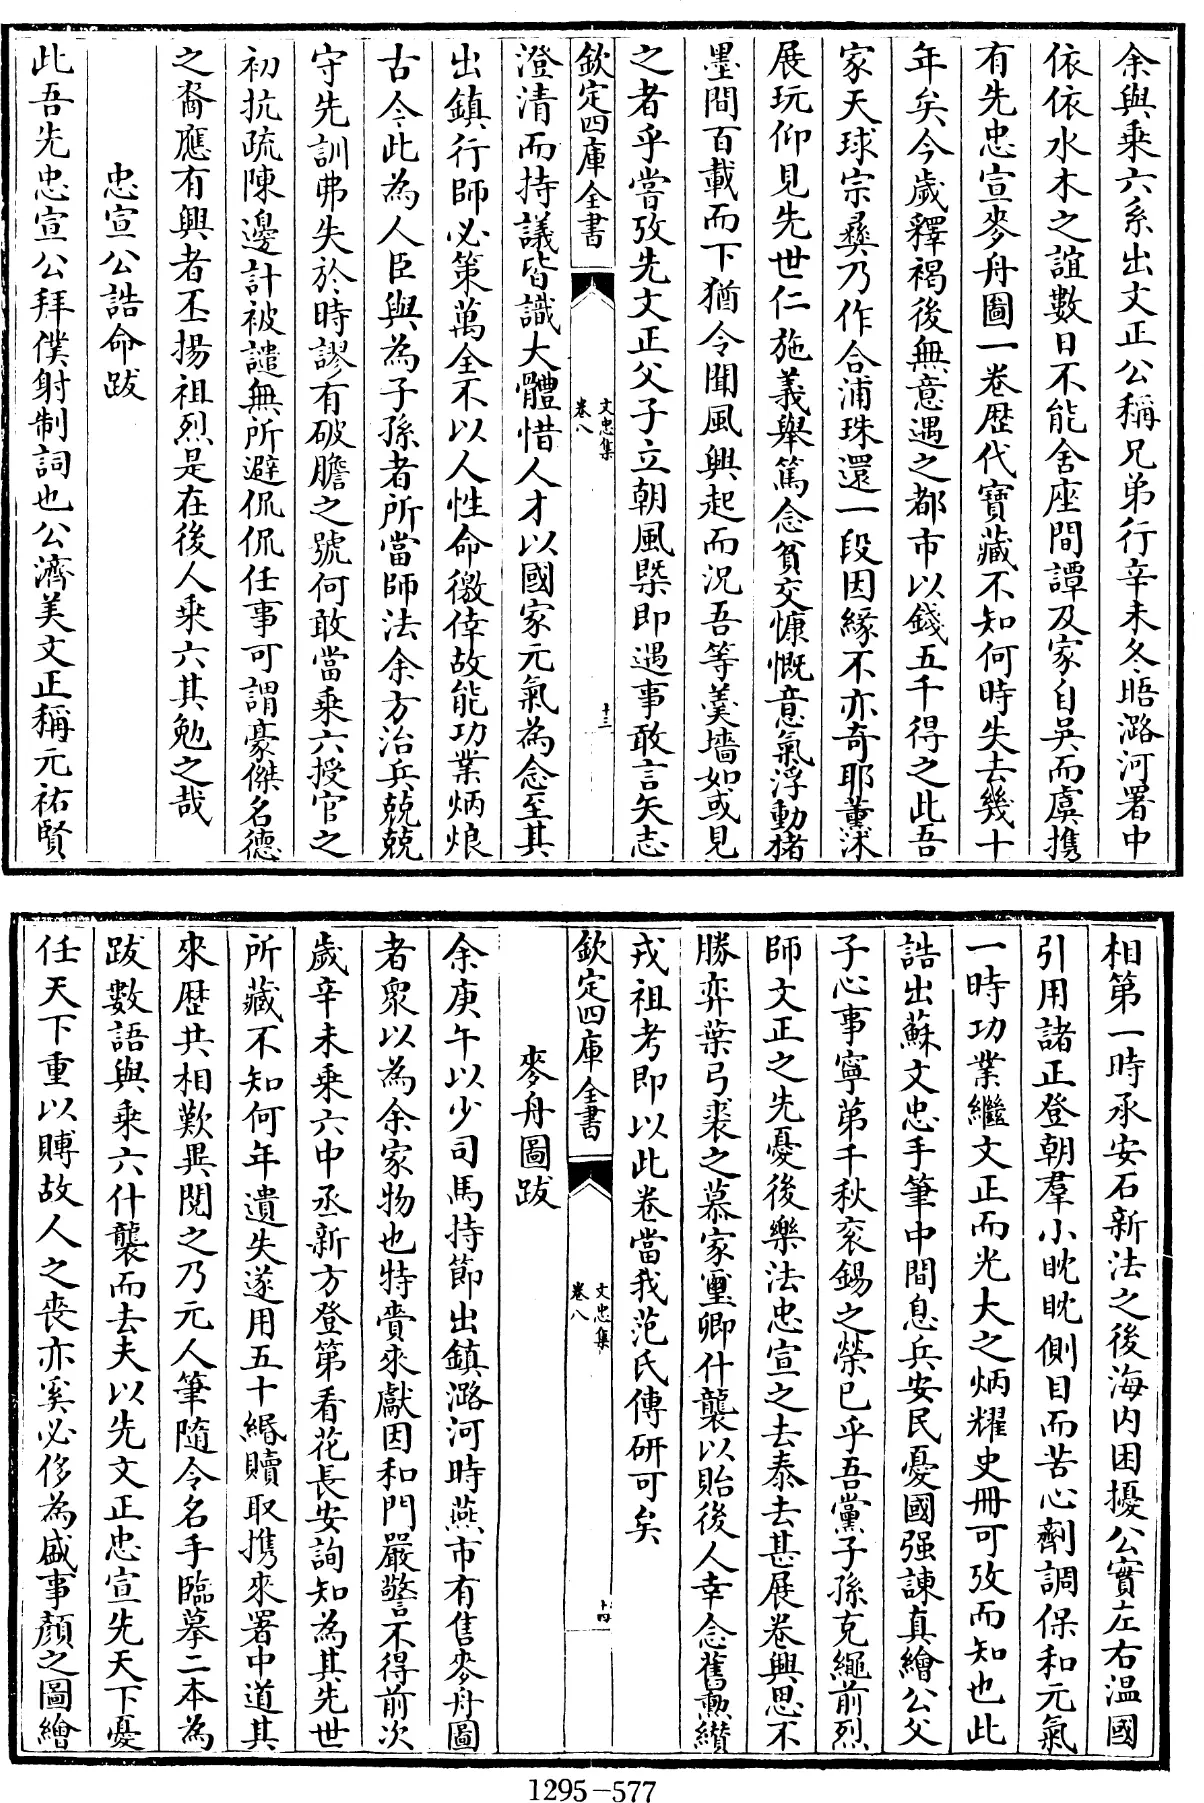 余與乘六系出文正公稱兄弟行辛未冬晤潞河署中
依依水木之誼數日不能舍座間譚及家自吳而虞攜
有先忠宣麥舟圖一卷歷代寶藏不知何時失去幾十
年矣今歲釋褐後無意遇之都市以錢五千得之此吾
家天球宗彝乃作合浦珠還一段因緣不亦奇耶薰沭
展玩仰見先世仁施義舉篤念貧交慷慨意氣浮動楮
墨間百載而下猶令聞風興起而況吾等羹墻如或見
之者乎嘗攷先文正父子立朝風槩即遇事敢言矢志
欽定四庫全書
文忠集
卷八
十三
澄清而持議皆識大體惜人才以國家元氣為念至其
出鎮行師必策萬全不以人性命徼倖故能功業炳烺
古今此為人臣與為子孫者所當師法余方治兵兢兢
守先訓弗失於時謬有破膽之號何敢當乘六授官之
初抗疏陳邊計被譴無所避侃侃任事可謂豪傑名德
之裔應有興者丕揚祖烈是在後人乘六其勉之哉
忠宣公誥命跋
此吾先忠宣公拜僕射制詞也公濟美文正稱元祐賢
相第一時承安石新法之後海内困擾公實左右温國
引用諸正登朝羣小眈眈側目而苦心劑調保和元氣
一時功業繼文正而光大之炳耀史冊可攷而知也此
誥出蘇文忠手筆中間息兵安民憂國强諫真繪公父
子心事寧第千秋衮錫之榮已乎吾黨子孫克繩前烈
師文正之先憂後樂法忠宣之去泰去甚展卷興思不
勝弈葉弓裘之慕家璽卿什襲以貽後人幸念舊勲纘
戎祖考即以此卷當我范氏傳研可矣
欽定四庫全書
文忠集
卷八
十四
麥舟圖跋
余庚午以少司馬持節出鎮潞河時燕市有售麥舟圖
者衆以為余家物也特賫求獻因和門嚴警不得前次
歲辛未乘六中丞新方登第看花長安詢知為其先世
所藏不知何年遺失遂用五十緡贖取攜來署中道其
來歷共相歎異閱之乃元人筆隨令名手臨摹二本為
跋數語與乘六什襲而去夫以先文正忠宣先天下憂
任天下重以賻故人之喪亦奚必侈為盛事顏之圖繪
1295-577